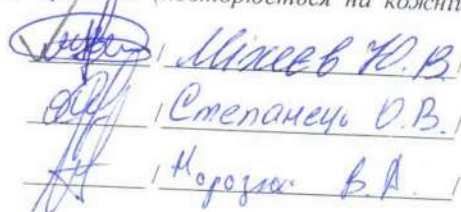 (повторюється на кожній
/ Міхеєв Ю.В.
/ Степанець О.В.
/ В.А.